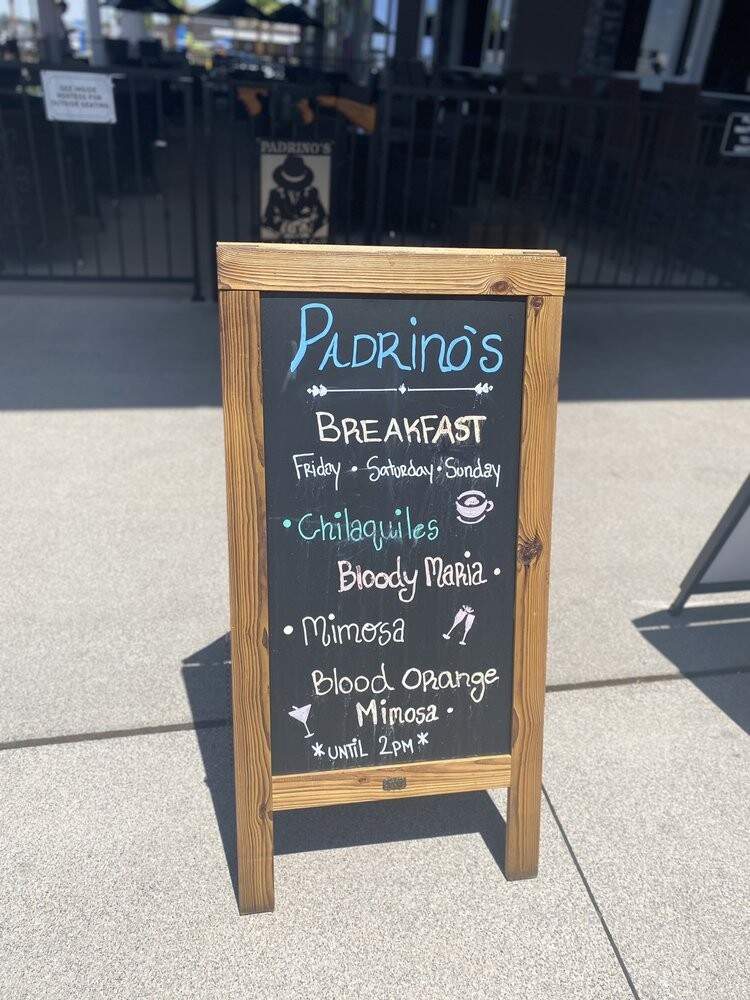 SEE INSIDE
HOSTESS FOR
OUTSIDE SEATING
PADRINO'S
PADRINO'S
BREAKFAST
Friday • Saturday • Sunday
• Chilaquiles
Bloody Maria •
• Mimosa
Blood Orange
Mimosa •
*UNTIL 2PM*